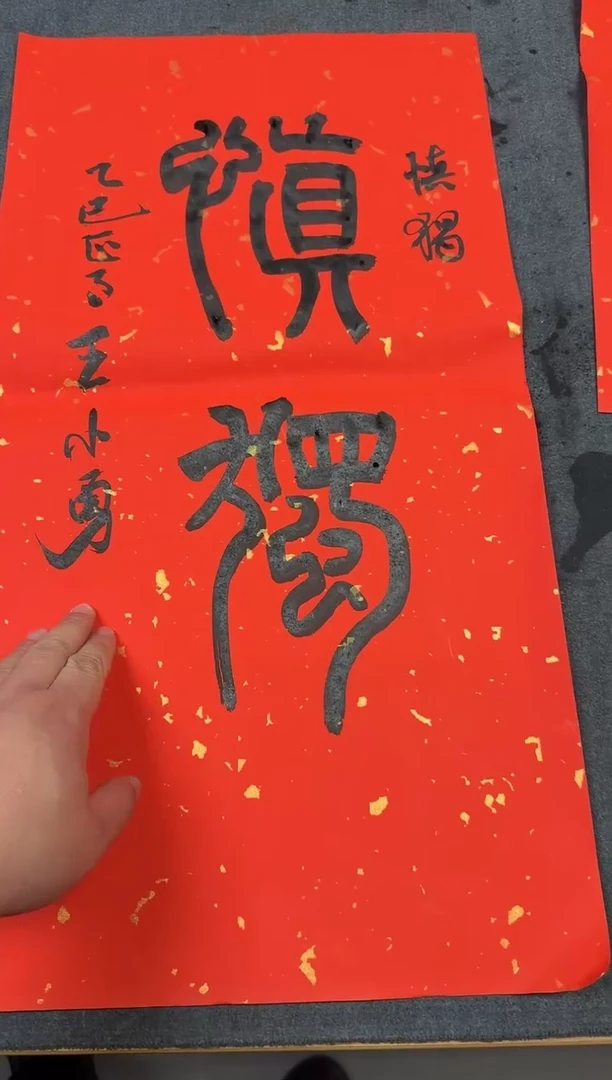 慎獨
慎獨
乙巳正月王小勇